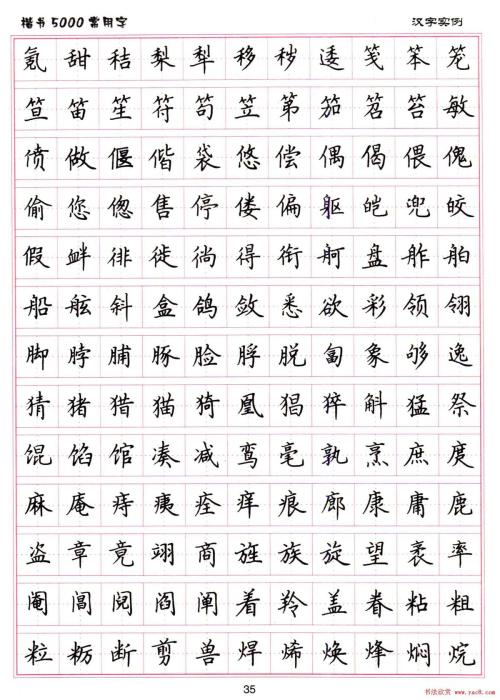 楷书5000常用字 汉字实例
氪 甜 秸 梨 犁 移 秽 逶 笺 笨 笼
笪 笛 笙 符 笱 笠 第 笳 笤 笞 敏
偾 做 偃 偕 袋 悠 偿 偶 偈 偎 傀
偷 您 偬 售 停 偻 偏 躯 皑 兜 皎
假 衅 徘 徙 徜 得 衔 舸 盘 舴 舶
船 舷 斜 盒 鸽 敛 悉 欲 彩 领 翎
脚 脖 脯 豚 脸 脬 脱 匐 象 够 逸
猜 猪 猎 猫 猗 凰 猖 猝 斛 猛 祭
馄 馅 馆 凑 减 鸾 毫 孰 烹 庶 庹
麻 庵 痔 痍 痊 痒 痕 廊 康 庸 鹿
盗 章 竟 翊 商 旌 族 旋 望 袤 率
阉 阊 阋 阎 阐 着 羚 盖 眷 粘 粗
粒 粝 断 剪 兽 焊 烯 焕 烽 焖 烷
35
书法欣赏
www.yac8.com